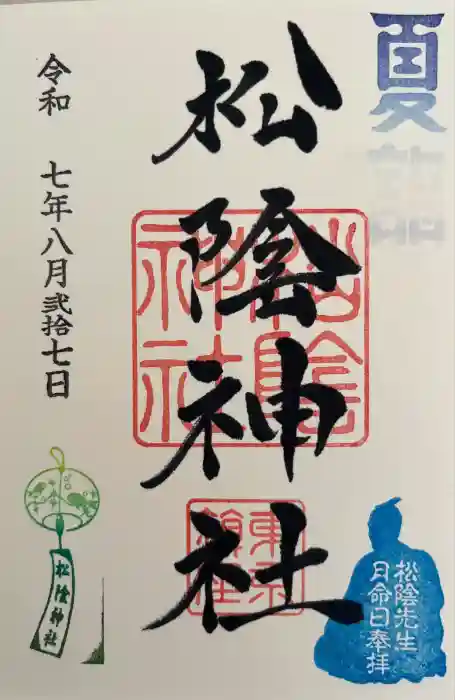 夏詣
松陰神社
松陰神社
令和 七年八月弐拾七日
松陰神社
松陰先生
月命日奉拝